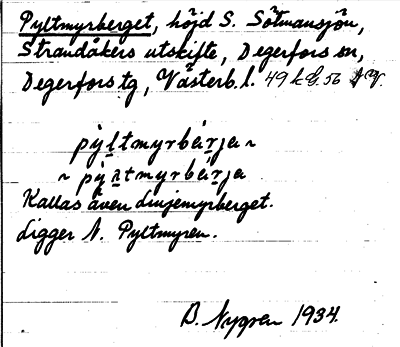 Pyltmyrberget, höjd S. Sötmansjön,
Strandåkers utskifte, Degerfors sn,
Degerfors tg, Västerb. l. 49 k G. 56
pyltmyrbärja ~
~ pyntmyrbärja
Kallas även Linjemyrberget.
Ligger N. Pyltmyren.
B. Nygren 1934.